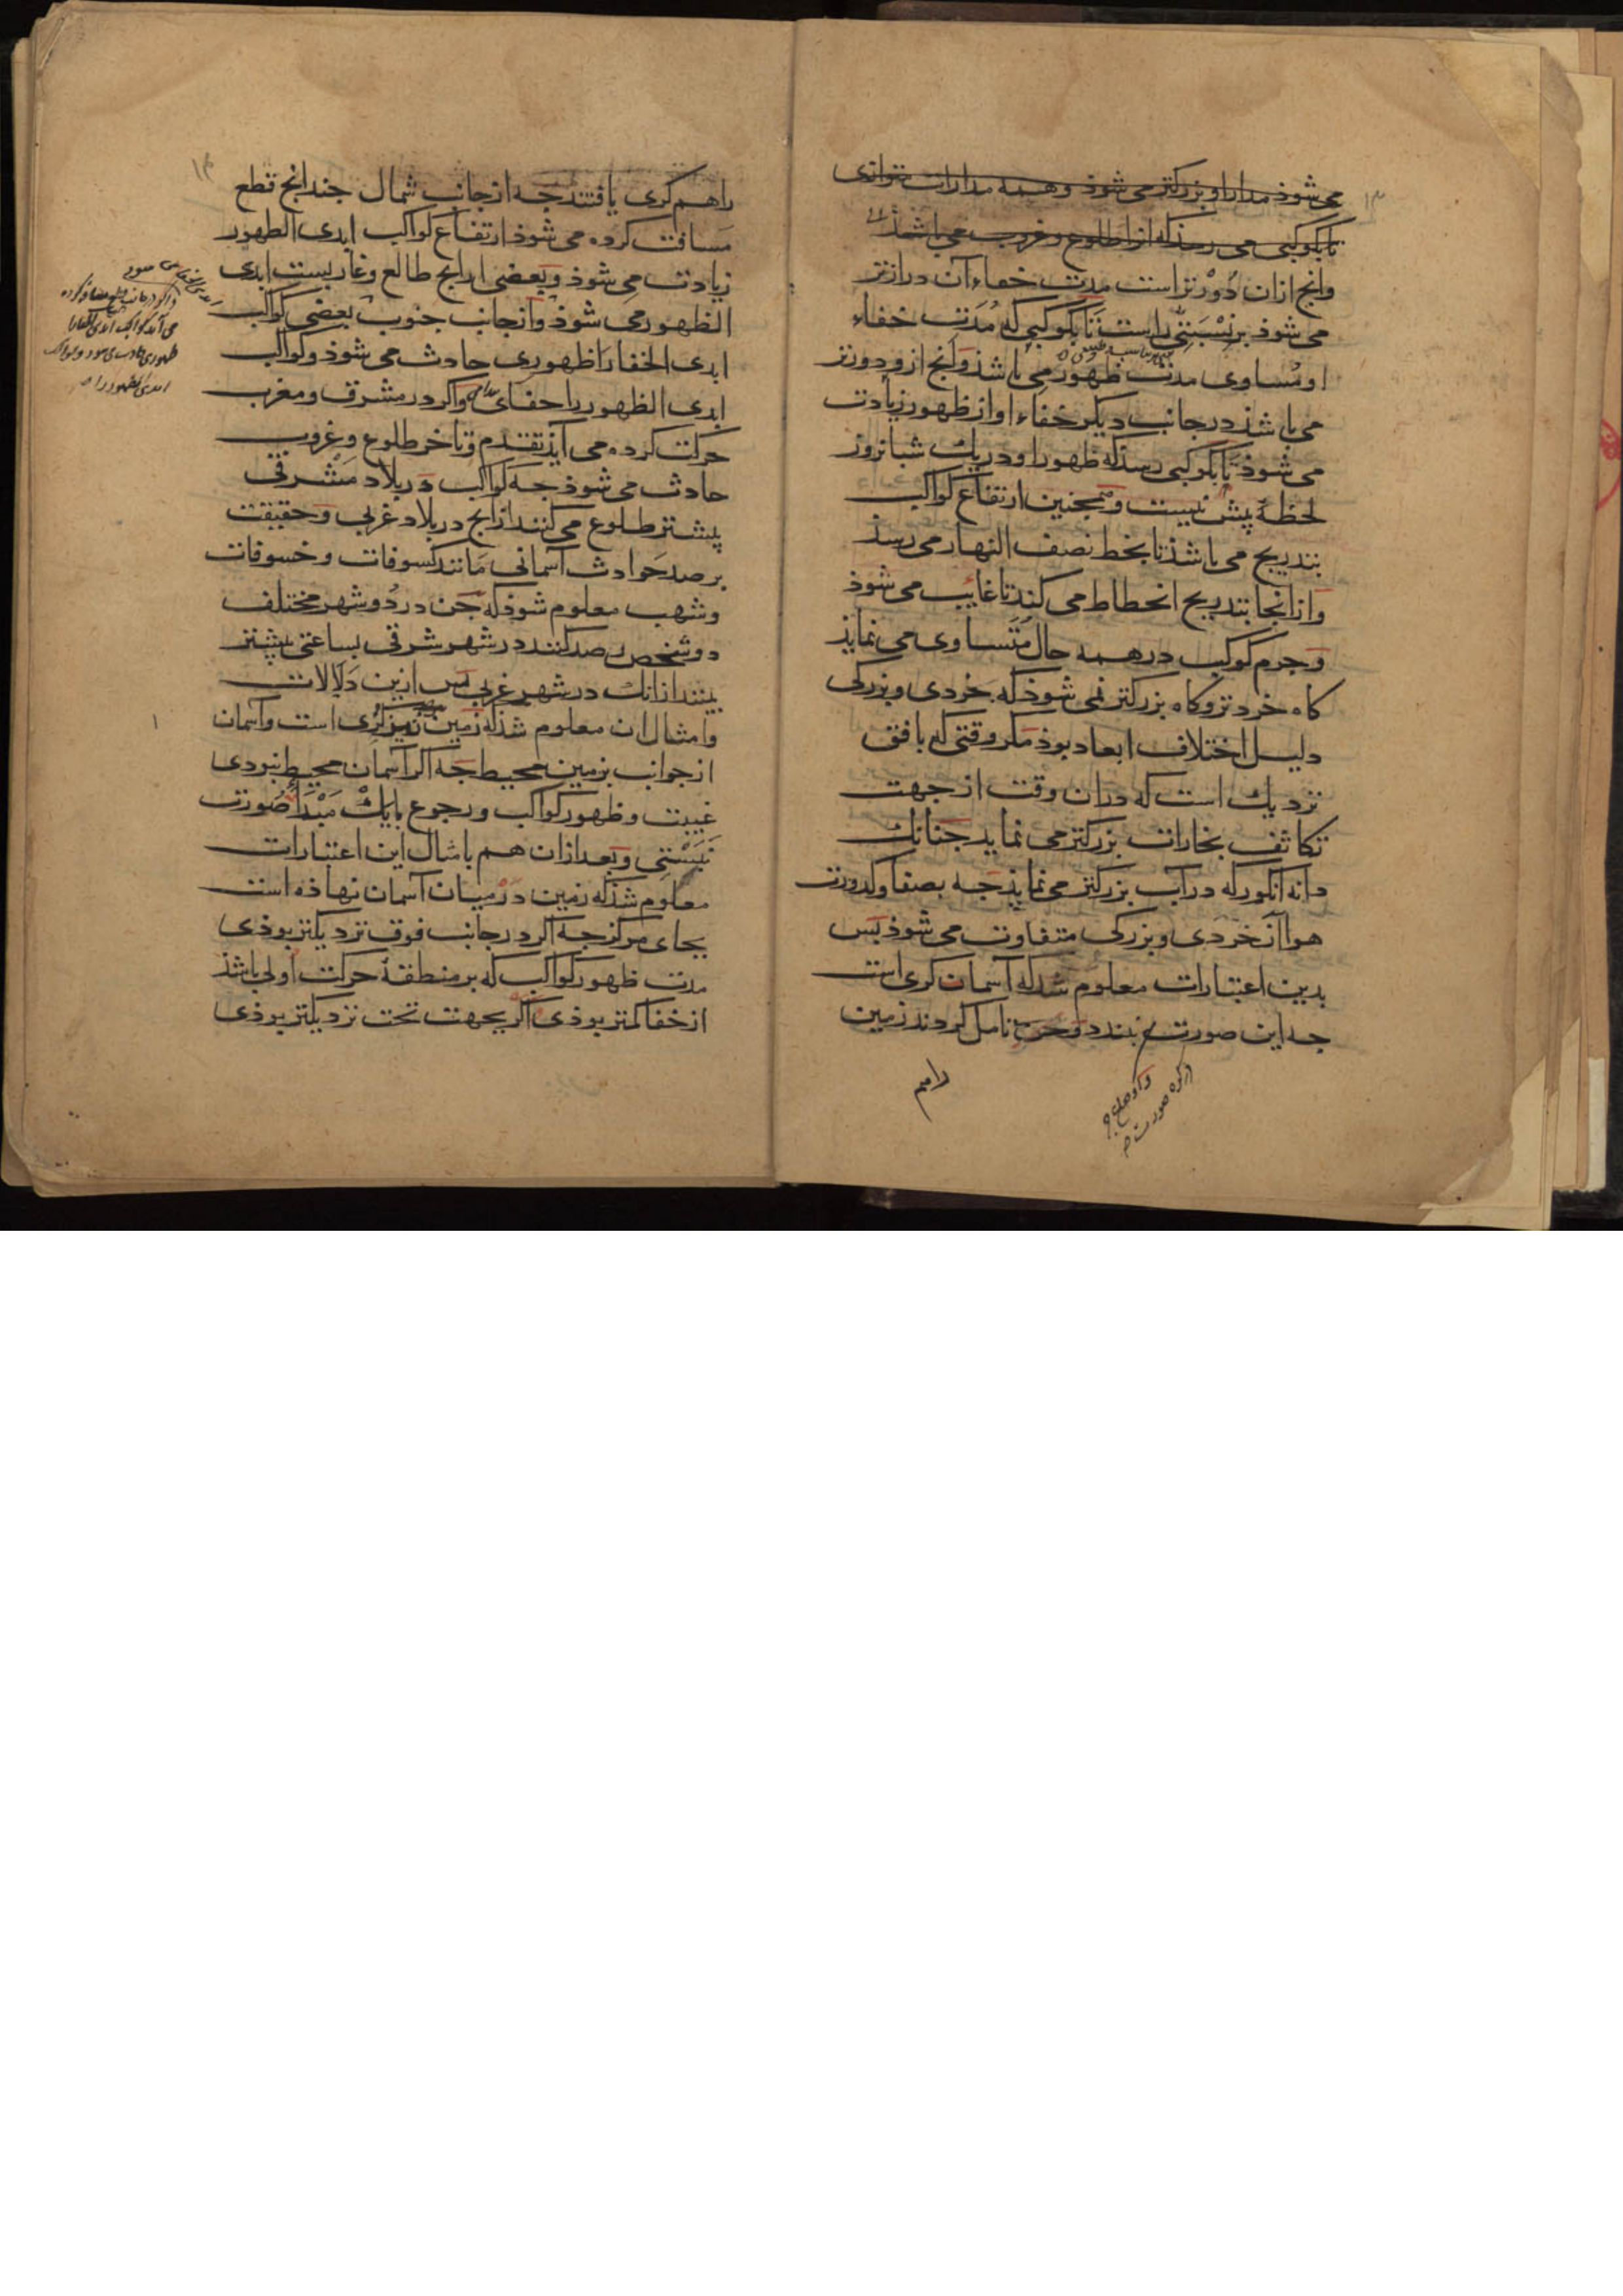 می شوذ مدار او بزرکتر می شوذ و همه مدارات متوازی
تا بکوکبی می رسذ که از اطلوع و غروب می باشذ
وانج ازان دورتر است مدت خفاء آن درازتر
می شوذ بر نسبتی راست تا بکوکبی که مدت خفاء
او مساوی مدت ظهور می باشذ وانج ازو دورتر
می باشذ در جانب دیکر خفاء او از ظهور زیادت
می شوذ تا بکوکبی رسذ که ظهور او در یک شبانروز
لحظهٔ بیش نیست و همجنین ارتفاع کواکب
بتدریج می باشذ تا بخط نصف النهار می رسذ
و از انجا بتدریج انحطاط می کند تا غایب می شوذ
و جرم کوکب در همه حال متساوی می نمایذ
کاه خردتر و کاه بزرکتر نمی شوذ که خردی و بزرکی
دلیل اختلاف ابعاد بوذ مکر وقتی که بافق
نزدیک است که دران وقت از جهت
تکاثف بخارات بزرکتر می نماید جنانک
دانه انکور که در آب بزرکتر می نمایذ جه بصفا و کدورت
هوا آن خردی و بزرکی متفاوت می شوذ بس
بدین اعتبارات معلوم شد که آسمان کری است
جه این صورت نبندد و جون تامل کردند زمین
راهم
۱۳
راهم کری یافتند جه از جانب شمال جندانج قطع
مسافت کرده می شوذ ارتفاع کواکب ابدی الظهور
زیادت می شوذ و بعضی ازانج طالع و غاربست ابدی
الظهور می شوذ و از جانب جنوب بعضی کواکب
ابدی الخفا را ظهوری حادث می شوذ و کواکب
ابدی الظهور را خفای و اکر در مشرق و مغرب
حرکت کرده می آیذ تقدم و تاخر طلوع و غروب
حادث می شوذ جه کواکب در بلاد مشرقی
بیشتر طلوع می کنند ازانج در بلاد غربی و حقیقت
برصد حوادث آسمانی مانند کسوفات و خسوفات
و شهب معلوم شوذ که جن در دو شهر مختلف
دو شخص رصد کنند در شهر شرقی بساعتی بیشتر
بینند ازانک در شهر غربی بس ازین دلالات
و امثال ان معلوم شذ که زمین نیز کری است و آسمان
از جوانب بزمین محیط جه اکر آسمان محیط نبودی
غیبت و ظهور کواکب و رجوع با یک مبدا صورت
نبستی و بعد ازان هم بامثال این اعتبارات
معلوم شذ که زمین در میان آسمان نهاذه است
بجای مرکز جه اکر در جانب فوق نزدیکتر بوذی
مدت ظهور کواکب که بر منطقهٔ حرکت اولی باشذ
از خفا کمتر بوذی اکر بجهت تحت نزدیکتر بوذی